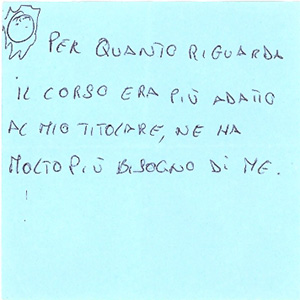 PER QUANTO RIGUARDA
IL CORSO ERA PIÙ ADATTO
AL MIO TITOLARE, NE HA
MOLTO PIÙ BISOGNO DI ME.